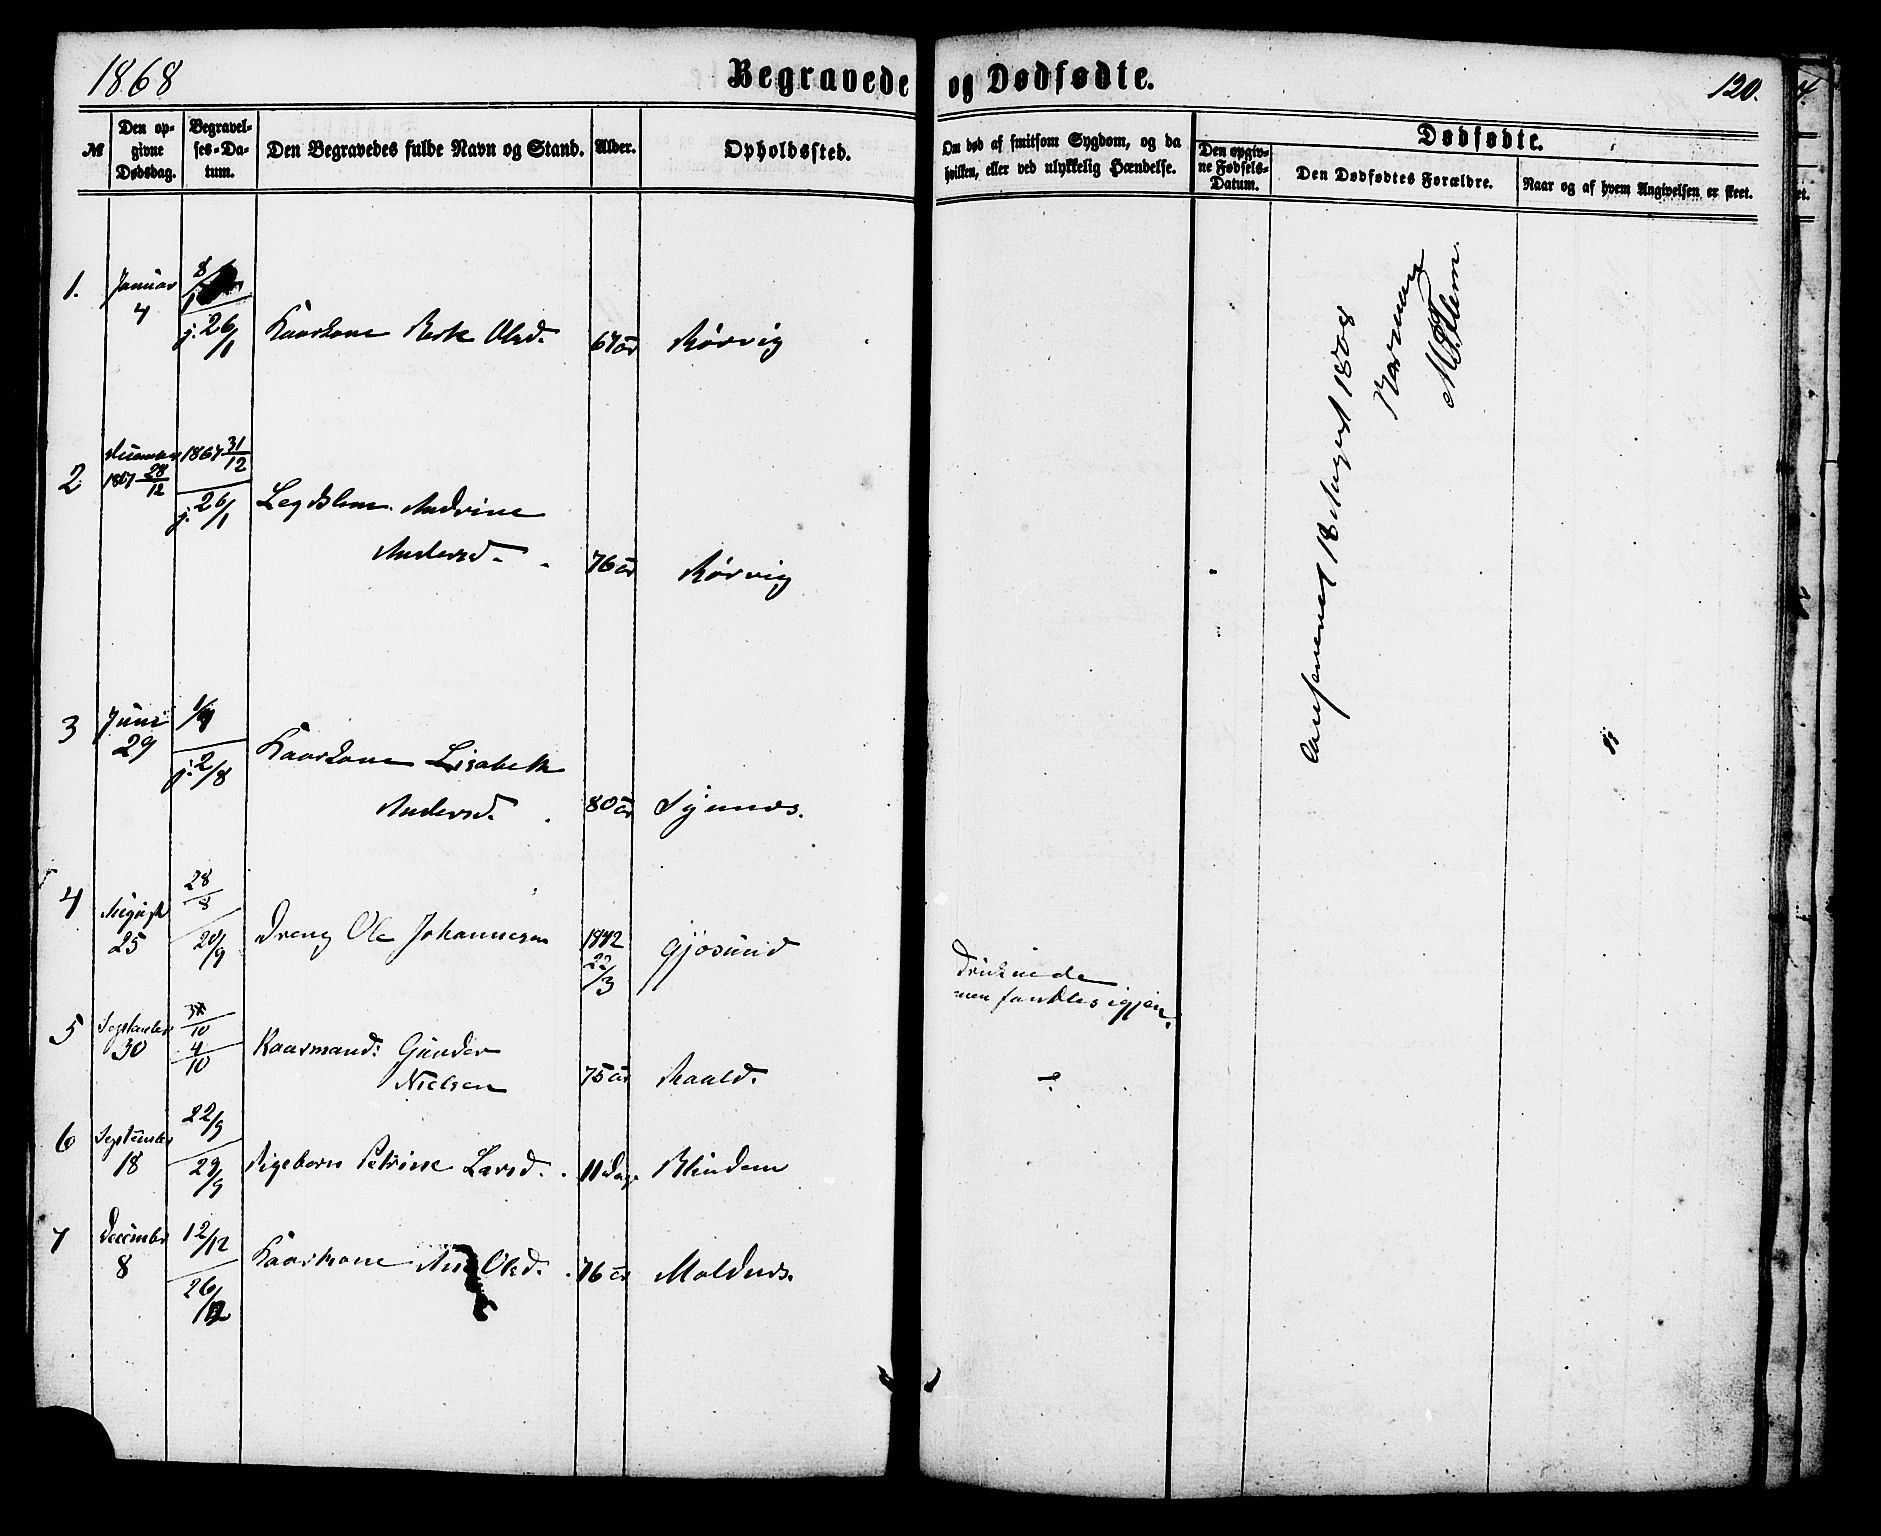 1868
Begravede og Dødfødte.
120.
№
Den op-
givne
Dødsdag.
Begravel-
ses-Da-
tum.
Den Begravedes fulde Navn og Stand.
Alder.
Opholdssted.
Om død af smitsom Sygdom, og da
hvilken, eller ved ulykkelig Hændelse.
Dødfødte.
Den opgiv-
ne Fødsels-
Datum.
Den Dødfødtes Forældre.
Naar og af hvem Angivelsen er skeet.
1.
Januar
4
8/1
j. 26/1
Kaarkone Olsd.
67 år
Rørvig
2
1867 28/12
1867 31/12
j. 26/1
Andrine
Andersd.
76 år
Rørvig
3
Juni
29
1/7
j. 2/8
Kaarkone Lisabeth
Andersd.
80 år
4
August
25
28/8
20/9
Dreng Ole Johannesen
22/3
Gjøsund
Druknede
men fandtes igjen.
5
September
30
4/10
Kaarmand: Gunder
Nielsen
75 år
Roald.
6
September
18
22/9
29/9
Pigebarn Petrine Larsd.
11 Dage
Blindem
7
December
8
12/12
26/12
Kaarkone Olsd.
76 år
Moldnes.
18 August 1868